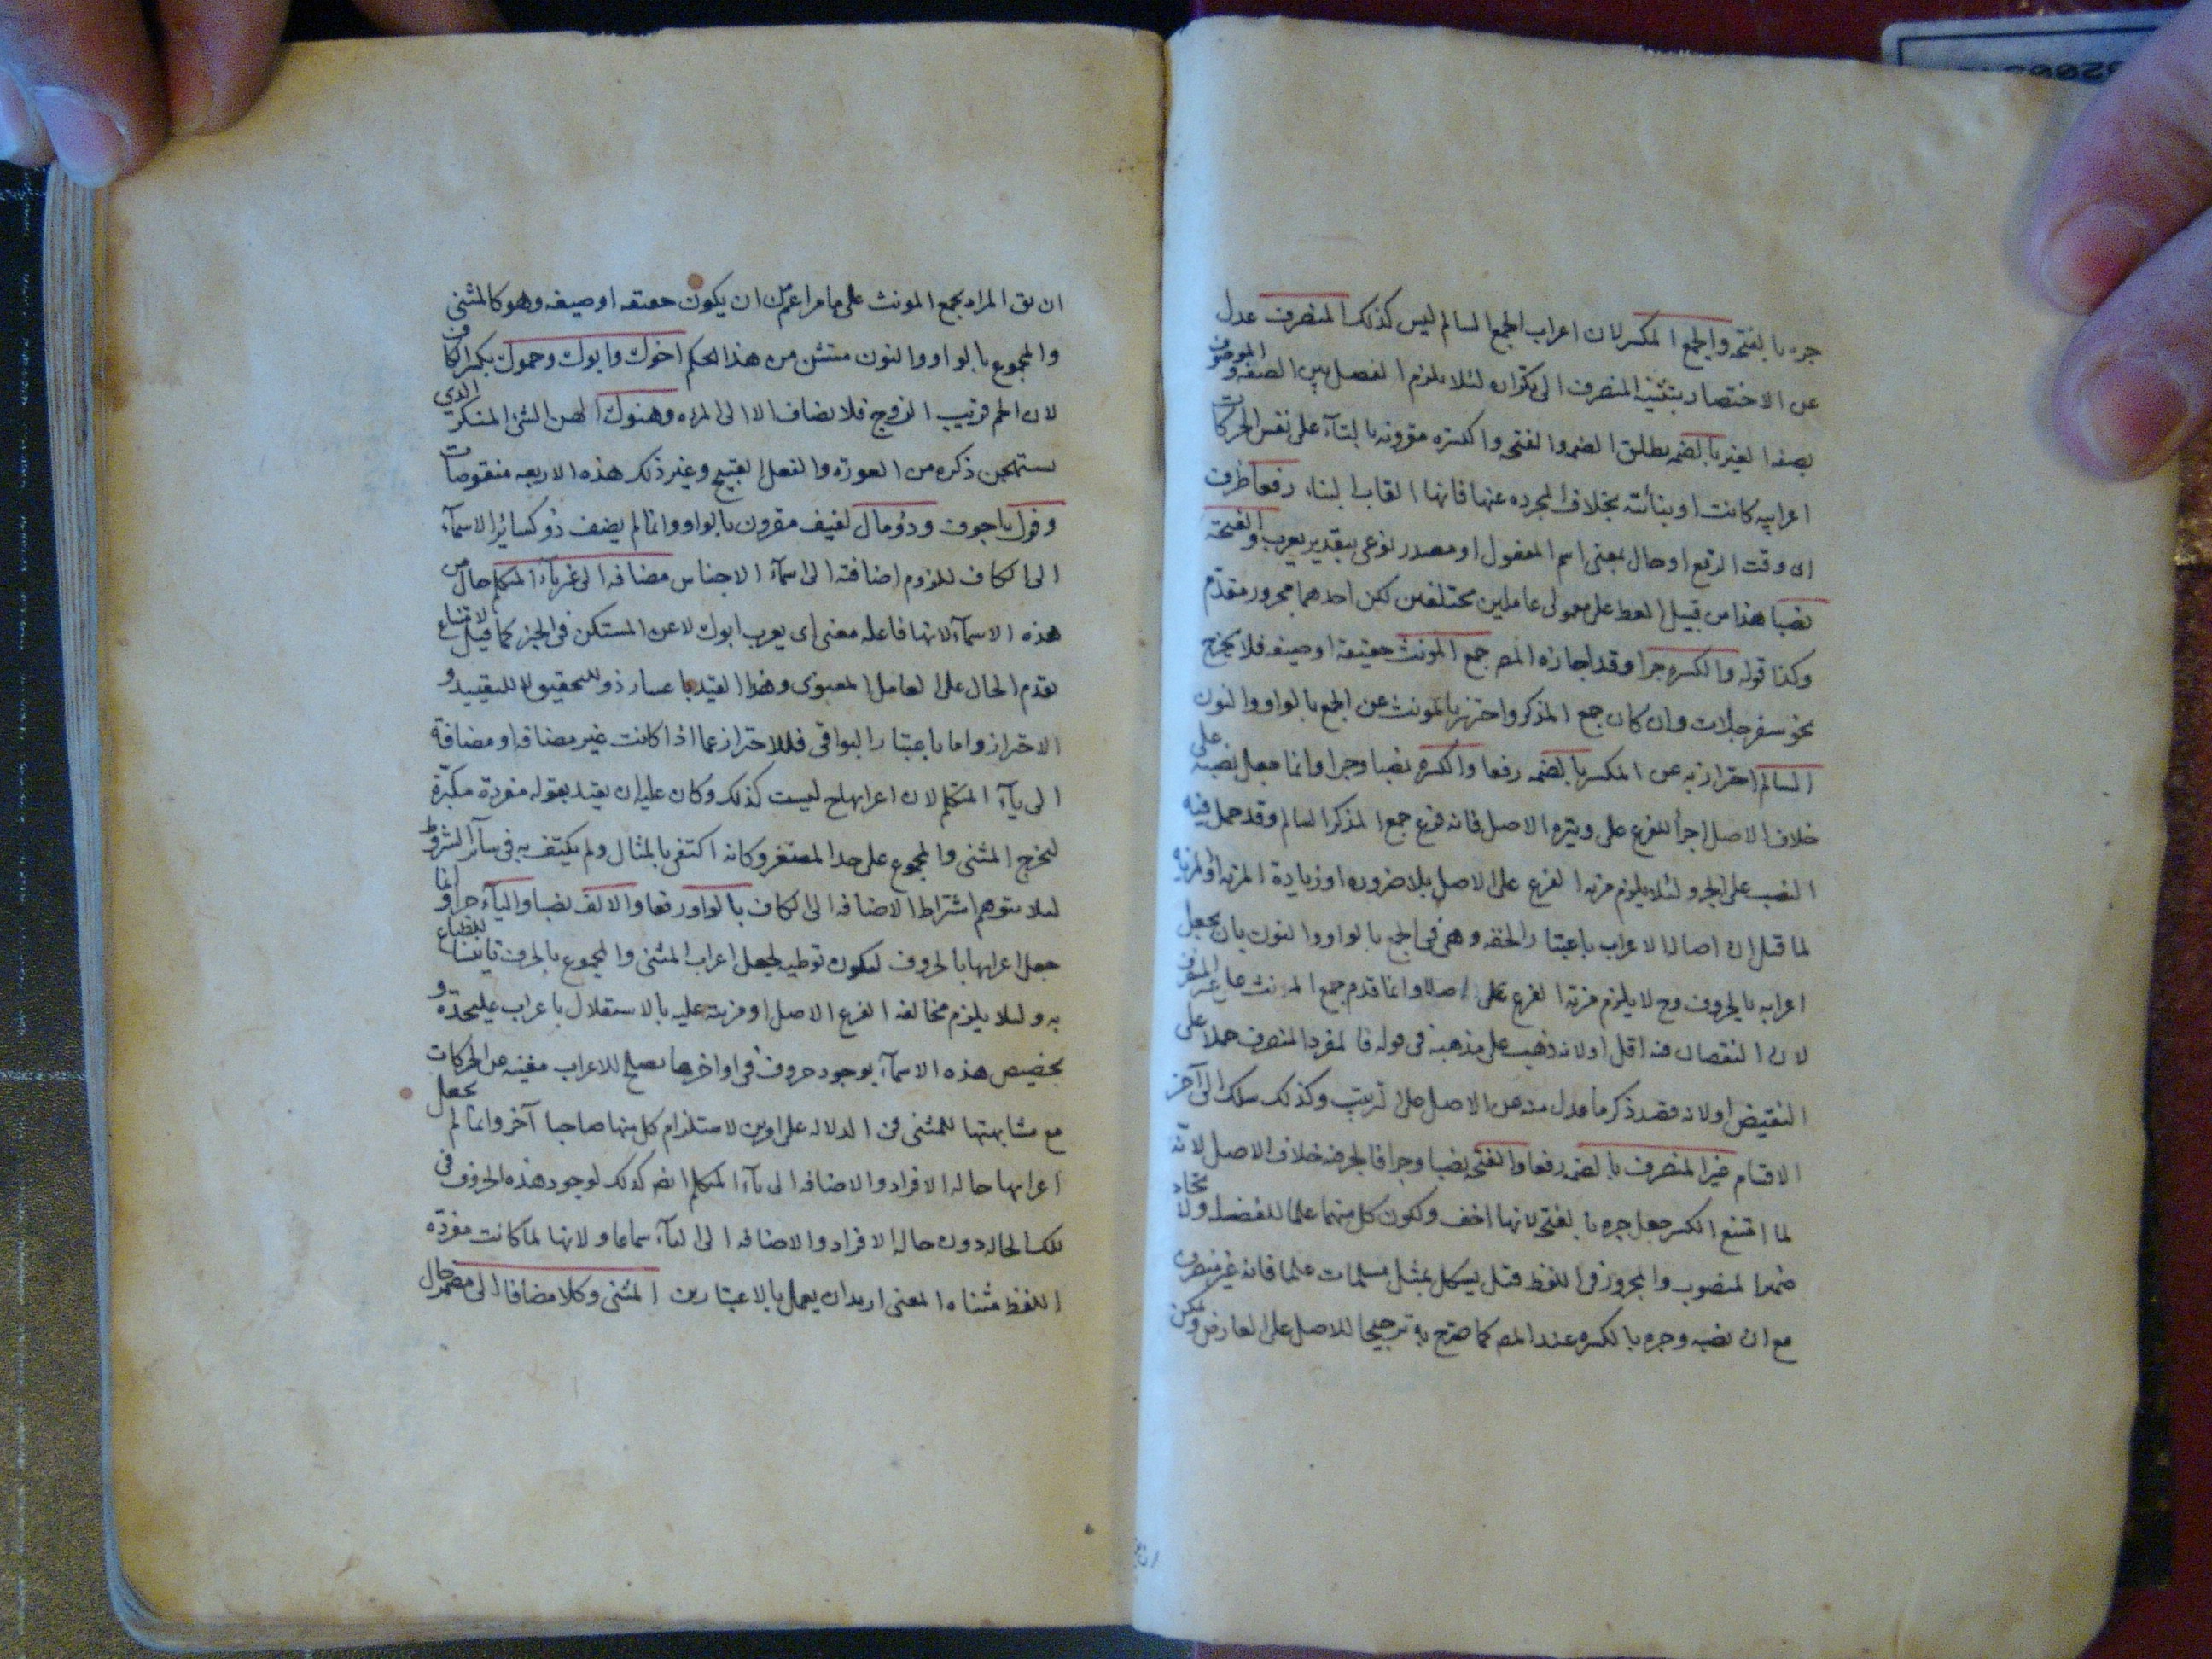 جره بالفتحة والجمع المكسر لان اعراب الجمع السالم ليس كذلك المنصرف عدل
عن الاختصار بتثنية المنصرف الى تكراره لئلا يلزم الفصل بين الصفة والموصوف
بصفة الغير بالضمة يطلق الضمة والفتحة والكسرة مقرونة بالتآء على نفس الحركات
اعرابية كانت او بنائية بخلاف المجرده عنها فانها القاب البناء رفعا ظرف
اى وقت الرفع او حال بمعنى اسم المفعول او مصدر نوعى بتقدير يعرب والفتحة
نصبا هذا من قبيل العطف على معمولى عاملين مختلفين لكن احدهما مجرور مقدم
وكذا قوله والكسرة جرا وقد اجازه المص جمع المونث حقيقة او صيغه فلا يخرج
نحو سفرجلات وان كان جمع المذكر واحترز بالمونث عن الجمع بالواو والنون
السالم احتراز به عن المكسر بالضمه رفعا والكسرة نصبا وجرا وانما جعل نصبه على
خلاف الاصل اجرأ للفرع على وتيرة الاصل فانه فرع جمع المذكر السالم وقد حمل فيه
النصب على الجر ولئلا يلزم مزية الفرع على الاصل بلا ضروره او زيادة المزية والمزيه
لما قيل ان اصالة الاعراب باعتبار الخفه وهى فى الجمع بالواو والنون بان يجعل
اعرابه بالحروف وح لا يلزم مزية الفرع على اصله وانما قدم جمع المونث على غير المنصرف
لان النقصان فيه اقل اولانه ذهب على مذهبه فى قوله فالمفرد المنصرف حملا على
النقيض اولانه قصد ذكر ما عدل منه عن الاصل على ترتيب وكذلك سلك الى آخر
الاقسام غير المنصرف بالضمه رفعا والفتحه نصبا وجرا فالجر فيه خلاف الاصل لانه
لما امتنع الكسر جعل جره بالفتح لانها اخف ولكون كل منهما علما للفضلة ولاتحاد
ضمير المنصوب والمجرور فى اللفظ قيل يشكل بمثل مسلمات علما فانه غير منصرف
مع ان نصبه وجره بالكسره عند المص كما صرح به ترجيحا للاصل على العارض ويمكن
ان يق المراد بجمع المونث على ما مر اعم من ان يكون حقيقه او صيغه وهو كالمثنى
والمجموع بالواو والنون مستثنى من هذا الحكم اخوك وابوك وحموك بكسر الكاف
لان الحم قريب الزوج فلا يضاف الا الى المرءه وهنوك الهن الشئ المنكر الذى
يستهجن ذكره من العورة والفعل القبيح وغير ذلك هذه الاربعه منقوصات
وفوك اجوف وذو مال لفيف مقرون بالواو وانما لم يضف ذو كسائر الاسمآء
الى الكاف للزوم اضافته الى اسمآء الاجناس مضافه الى غير يآء المتكلم حال من
هذه الاسمآء لانها فاعله معنى اى يعرب ابوك لا عن المستكن فى الخبر كما قيل لامتناع
تقدم الحال على العامل المعنوى وهذا القيد باعتبار ذو للتحقيق لا للتقييد و
الاحتراز واما باعتبار البواقى فللاحتراز عما اذا كانت غير مضافه او مضافة
الى يآء المتكلم لان اعرابها ح ليست كذلك وكان عليه ان يقيد بقوله مفردة مكبرة
ليخرج المثنى والمجموع على حدا المصغر وكانه اكتفى بالمثال ولم يكتف به فى سآئر الشروط
لئلا يتوهم اشتراط الاضافه الى الكاف بالواو رفعا والالف نصبا واليآء جرا وانما
جعل اعرابها بالحروف ليكون توطيه لجعل اعراب المثنى والمجموع بالحرف تانيسا للطباع
به ولئلا يلزم مخالفه الفرع الاصل او مزيته عليه بالاستقلال باعراب عليحدّه و
تخصيص هذه الاسمآء بوجود حروف فى اواخرها يصلح للاعراب مغنيه عن الحركات
مع مشابهتها للمثنى فى الدلاله على امرين لاستلزام كل منها صاحبا آخر وانما لم يجعل
اعرابها حاله الافراد والاضافه الى يآء المتكلم ايضا كذلك لوجود هذه الحروف فى
تلك الحاله دون حاله الافراد والاضافه الى اليآء سماعا ولانها لما كانت مفردة
اللفظ مثناه المعنى اريد ان يعمل بالاعتبارين المثنى وكلا مضافا الى مضمر حال